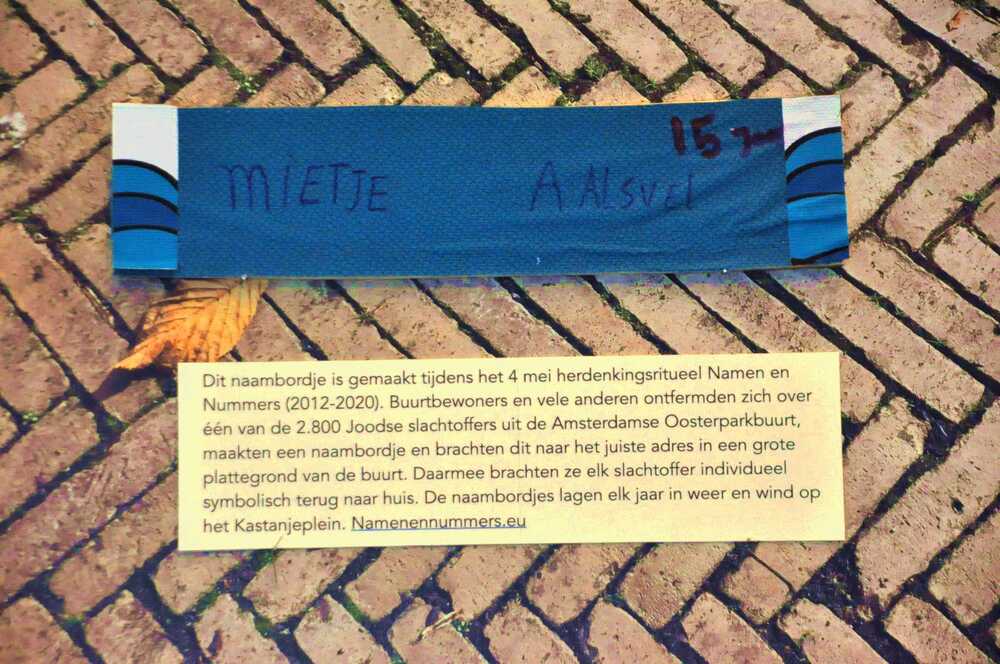 15 Jaar
MIETJE AALSVEL
Dit naambordje is gemaakt tijdens het 4 mei herdenkingsritueel Namen en
Nummers (2012-2020). Buurtbewoners en vele anderen ontfermden zich over
één van de 2.800 Joodse slachtoffers uit de Amsterdamse Oosterparkbuurt,
maakten een naambordje en brachten dit naar het juiste adres in een grote
plattegrond van de buurt. Daarmee brachten ze elk slachtoffer individueel
symbolisch terug naar huis. De naambordjes lagen elk jaar in weer en wind op
het Kastanjeplein. Namenennummers.eu